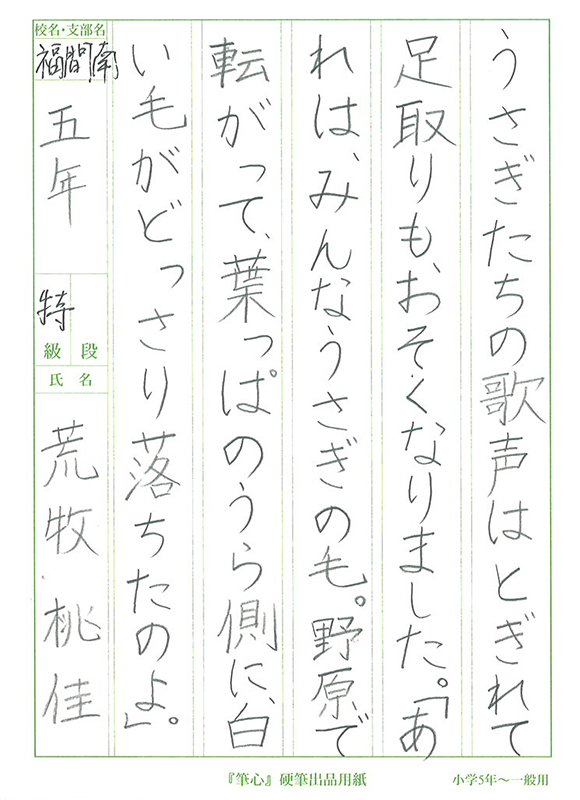 うさぎたちの歌声はとぎれて
足取りも、おそくなりました。「あ
れは、みんなうさぎの毛。野原で
転がって、葉っぱのうら側に、白
い毛がどっさり落ちたのよ」。
校名・支部名
福間南
五年
特
級 段
氏 名
荒牧桃佳
『筆心』硬筆出品用紙
小学5年〜一般用